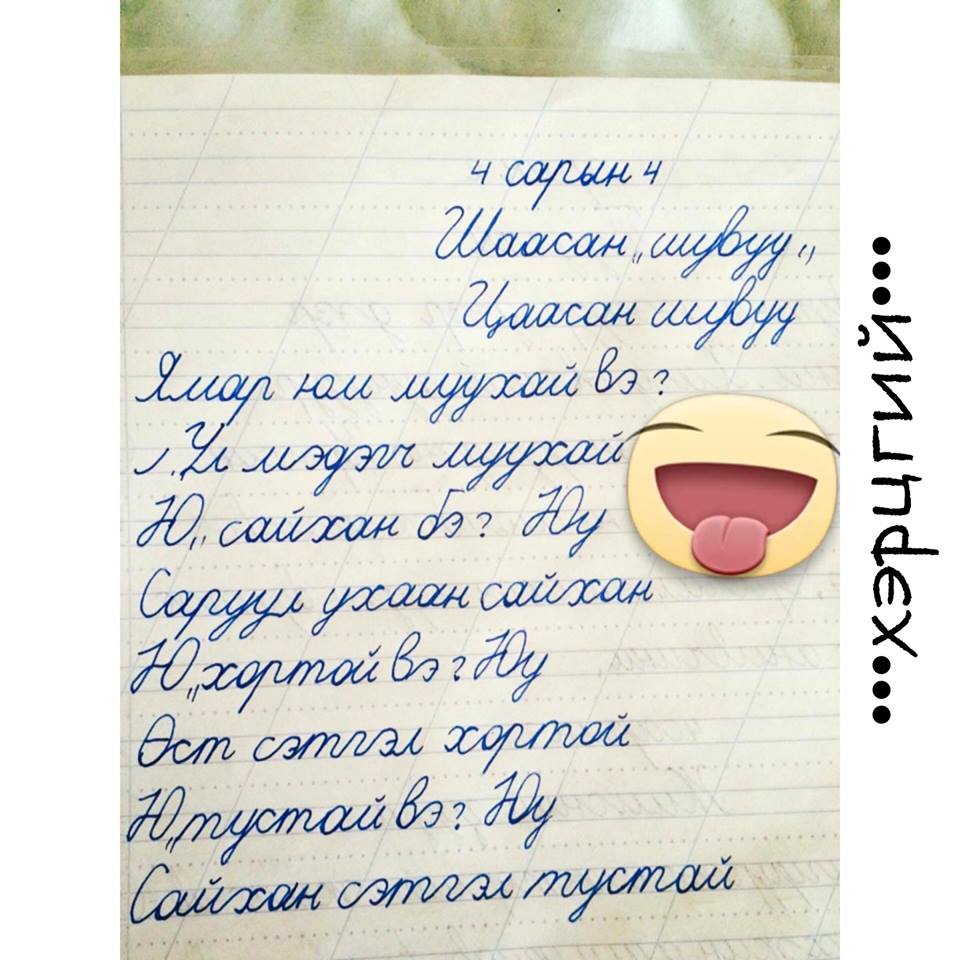 4 сарын 4
Шаасан „шувуу„
Цаасан шувуу
Ямар юм муухай вэ?
Үл мэдэгч муухай
Ю„ сайхан бэ? Юу
Саруул ухаан сайхан
Ю„хортой вэ? Юу
Өст сэтгэл хортой
Ю„тустай вэ? Юу
Сайхан сэтгэл тустай
...хэрцгий...